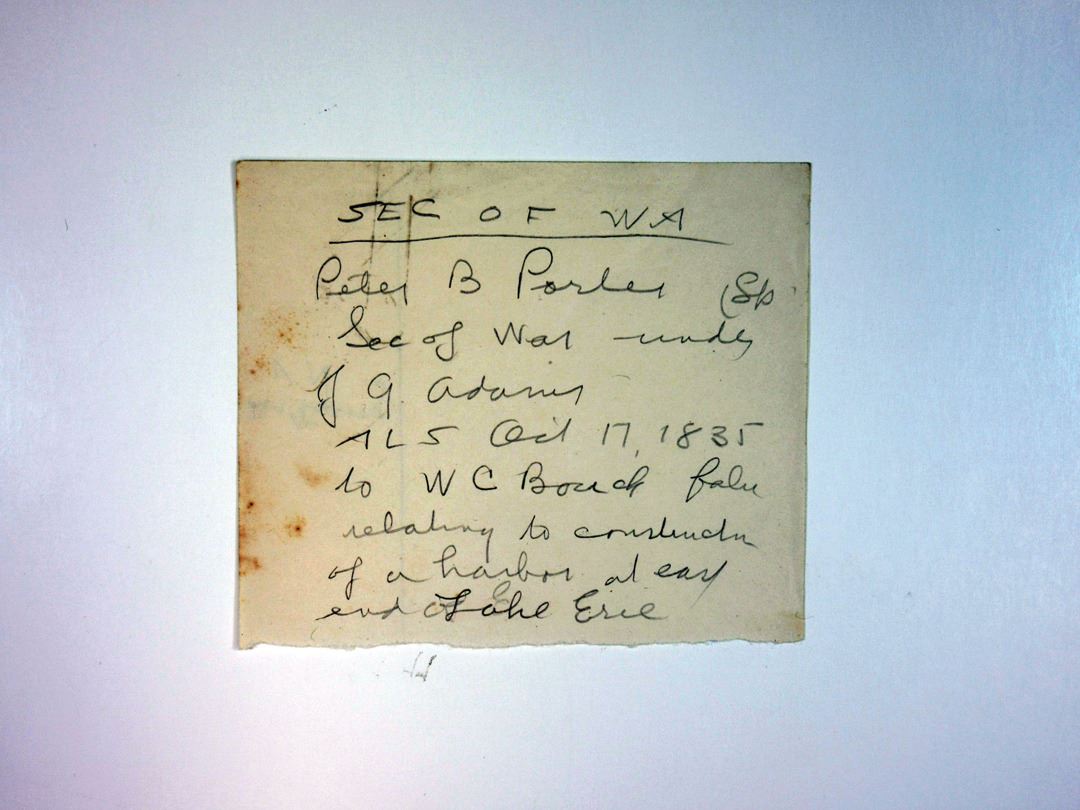 SEC OF WA
Peter B Porter (Sp
Sec of War under
J Q Adams
ALS Oct 17, 1835
to W C Bouck
relating to constructn
of a harbor at east
end of Lake Erie